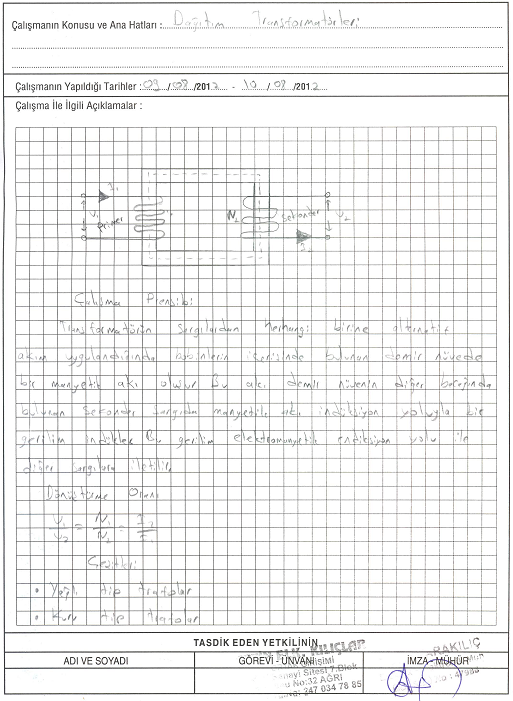 Çalışmanın Konusu ve Ana Hatları : Dağıtım Transformatörleri
Çalışmanın Yapıldığı Tarihler : 09/08/2012 - 10/08/2012
Çalışma İle İlgili Açıklamalar :
I1
V1
Primer
N2
Sekonder
V2
I2
Çalışma Prensibi
Transformatörün sargılardan herhangi birine alternatif
akım uygulandığında bobinlerin içerisinde bulunan demir nüvede
bir manyetik akı olusur Bu akı demir nüvenin diğer bacağında
bulunan sekonder sargıda manyetik akı indüksiyon yoluyla bir
gerilim indükler Bu gerilim elektromanyetik endiksiyon yolu ile
diğer sargılara iletilir.
Dönüştürme Oranı
V1/V2 = N1/N2 = I2/I1
Çeşitleri
• Yağlı tip trafolar
• Kuru tip trafolar
TASDİK EDEN YETKİLİNİN
ADI VE SOYADI GÖREVİ - ÜNVANI İMZA - MÜHÜR
KILIÇLAR
Sitesi 7.Blok
No:32 AĞRI
247 034 78 85